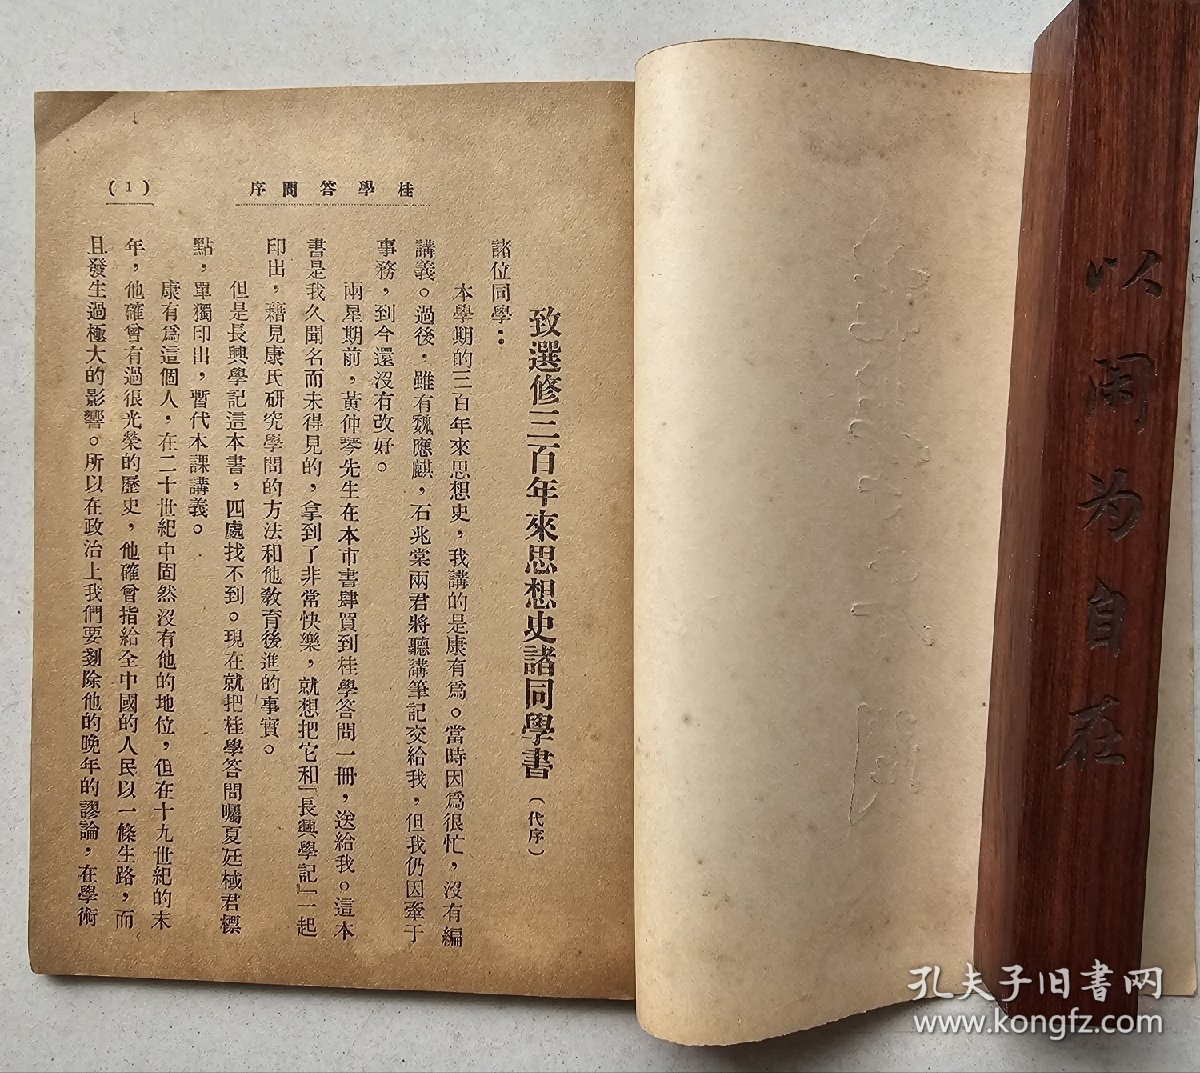 桂學答問序
(1)
致選修三百年來思想史諸同學書（代序）
諸位同學：
本學期的三百年來思想史，我講的是康有爲。當時因爲很忙，沒有編
講義。過後，雖有魏應麒，石兆棠兩君將聽講筆記交給我，但我仍因牽于
事務，到今還沒有改好。
兩星期前，黃仲琴先生在本市書肆買到桂學答問一冊，送給我。這本
書是我久聞名而未得見的，拿到了非常快樂，就想把它和「長興學記」一起
印出，藉見康氏研究學問的方法和他教育後進的事實。
但是長興學記這本書，四處找不到。現在就把桂學答問囑夏廷棫君標
點，單獨印出，暫代本課講義。
康有爲這個人，在二十世紀中固然沒有他的地位，但在十九世紀的末
年，他確曾有過很光榮的歷史，他確曾指給全中國的人民以一條生路，而
且發生過極大的影響。所以在政治上我們要剷除他的晚年的謬論，在學術
以閑为自在
孔夫子旧书网
www.kongfz.com